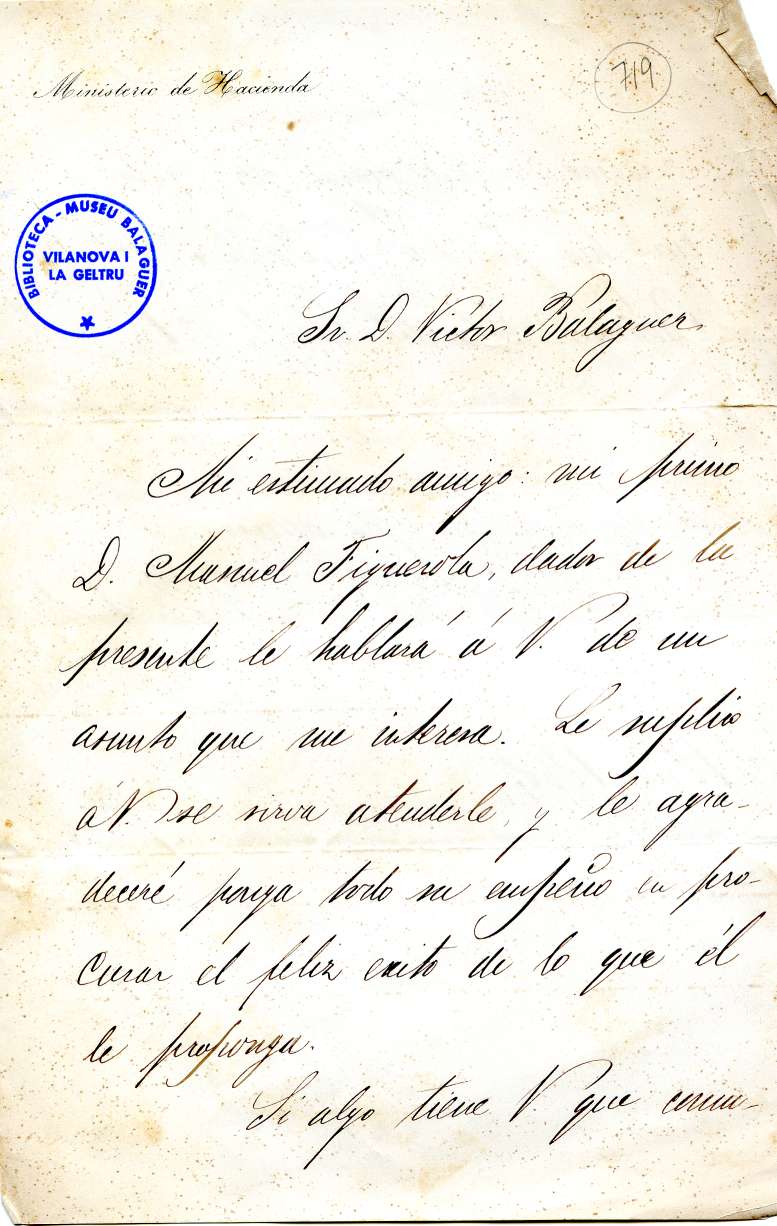 Ministerio de Hacienda
719
BIBLIOTECA - MUSEU BALAGUER
VILANOVA I
LA GELTRU
Sr. D. Victor Balaguer
Mi estimado amigo: mi primo
D. Manuel Figuerola, dador de la
presente le hablará á V. de un
asunto que me interesa. Le suplico
á V. se sirva atenderle, y le agra-
deceré ponga todo su empeño en pro-
curar el feliz exito de lo que él
le proponga.
Si algo tiene V. que comu-